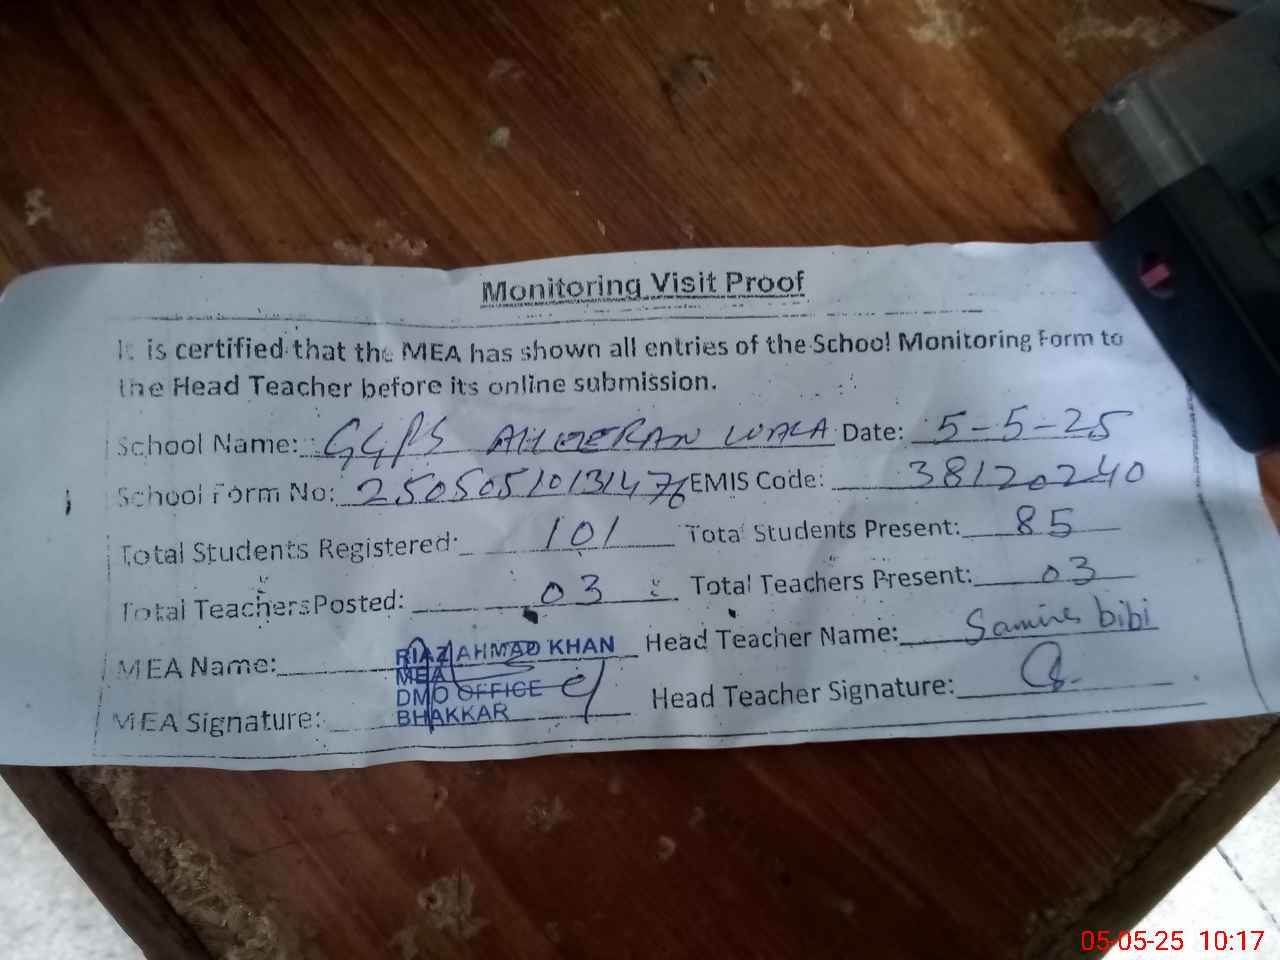 Monitoring Visit Proof
It is certified that the MEA has shown all entries of the School Monitoring Form to
the Head Teacher before its online submission.
School Name: GGPS WALA Date: 5-5-25
School Form No: 25050510131476 EMIS Code: 38120240
Total Students Registered: 101 Total Students Present: 85
Total Teachers Posted: 03 Total Teachers Present: 03
MEA Name: RIAZ AHMAD KHAN Head Teacher Name: bibi
MEA
MEA Signature: DMO OFFICE Head Teacher Signature:
BHAKKAR
05-05-25 10:17